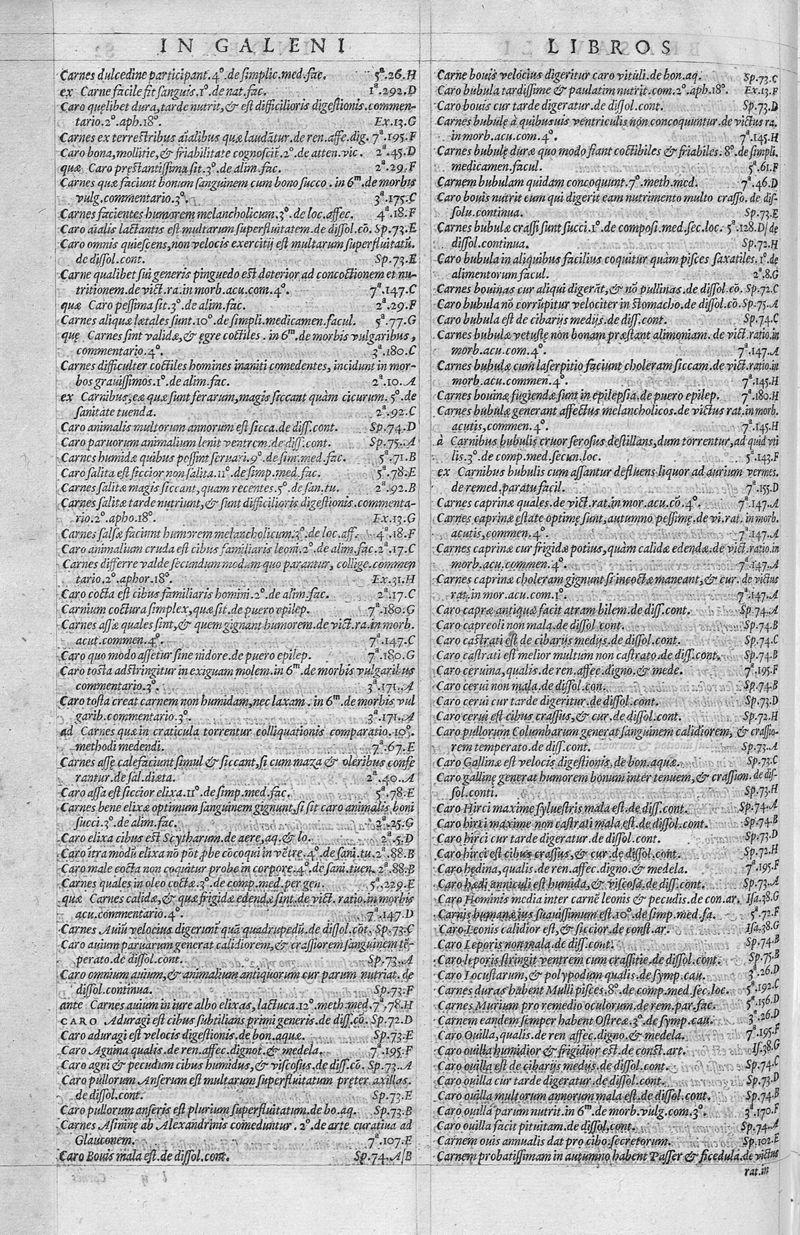 IN GALENI
Carnes dulcedine participant. 4°. de simplic. med. fac. 5ª. 26. H
ex Carne facile fit sanguis. 1°. de nat. fac. 1ª. 292. D
Caro quęlibet dura, tarde nutrit, & est difficilioris digestionis. commen-
tario. 2°. aph. 18°. Ex. 13. G
Carnes ex terrestribus aīalibus quæ laudātur. de ren. affe. dig. 7ª. 195. F
Caro bona, mollitie, & friabilitate cognoscit. 2°. de atten. vic. 2ª. 45. D
quæ Caro pręstantissima sit. 3°. de alim. fac. 2ª. 29. F
Carnes quæ faciunt bonum sanguinem cum bono succo. in 6ᵐ. de morbis
vulg. commentario. 3°. 3ª. 175. C
Carnes facientes humorem melancholicum. 3°. de loc. affec. 4ª. 18. F
Caro aīalis lactantis est multarum superfluitatem. de dissol. cō. Sp. 73. E
Caro omnis quiescens, non velocis exercitij est multarum superfluitatū.
de dissol. cont. Sp. 73. E
Carne qualibet sui generis pinguedo est deterior ad concoctionem et nu-
tritionem. de vict. ra. in morb. acu. com. 4°. 7ª. 147. C
quæ Caro pessima sit. 3°. de alim. fac. 2ª. 29. F
Carnes aliquæ lætales sunt. 10°. de simpli. medicamen. facul. 5ª. 77. G
quę Carnes sint validæ, & ęgre coctiles. in 6ᵐ. de morbis vulgaribus,
commentario. 4°. 3ª. 180. C
Carnes difficulter coctiles homines inaniti comedentes, incidunt in mor-
bos grauissimos. 1°. de alim. fac. 2ª. 10. A
ex Carnibus, eæ quæ sunt ferarum, magis siccant quàm cicurum. 5°. de
sanitate tuenda. 2ª. 92. C
Caro animalis multorum annorum est sicca. de diss. cont. Sp. 74. D
Caro paruorum animalium lenit ventrem. de diss. cont. Sp. 75. A
Carnes humidæ quibus possint seruari. 9°. de sim. med. fac. 5ª. 71. B
Caro salita est siccior non salita. 11°. de simp. med. fac. 5ª. 78. E
Carnes salitæ magis siccant, quam recentes. 5°. de san. tu. 2ª. 92. B
Carnes salitæ tarde nutriunt, & sunt difficilioris digestionis. commenta-
rio. 2°. apho. 18°. Ex. 13. G
Carnes salsæ faciunt humorem melancholicum. 3°. de loc. aff. 4ª. 18. F
Caro animalium cruda est cibus familiaris leoni. 2°. de alim. fac. 2ª. 17. C
Carnes differre valde secundum modum quo parantur, collige. commen
tario. 2°. aphor. 18°. Ex. 31. H
Caro cocta est cibus familiaris homini. 2°. de alim. fac. 2ª. 17. C
Carnium coctura simplex, quæ sit. de puero epilep. 7ª. 180. G
Carnes assæ quales sint, & quem gignant humorem. de vict. ra. in morb.
acut. commen. 4°. 7ª. 147. C
Caro quo modo assetur sine nidore. de puero epilep. 7ª. 180. G
Caro tosta adstringitur in exiguam molem. in 6ᵐ. de morbis vulgaribus
commentario. 3°. 3ª. 171. A
Caro tosta creat carnem non humidam, nec laxam. in 6ᵐ. de morbis vul
garib. commentario. 3°. 3ª. 171. A
ad Carnes quæ in craticula torrentur colliquationis comparatio. 10°.
methodi medendi. 7ª. 67. E
Carnes assę calefaciunt simul & siccant, si cum maza & oleribus confe
rantur. de sal. diæta. 2ª. 40. A
Caro assa est siccior elixa. 11°. de simp. med. fac. 5ª. 78. E
Carnes bene elixæ optimum sanguinem gignunt, si sit caro animalis boni
succi. 3°. de alim. fac. 2ª. 25. G
Caro elixa cibus est Scytharum. de aere, aq. & lo. 2ª. 5. D
Caro vltra modū elixa nō pōt p̄be cōcoqui in vētre. 4°. de sani. tu. 2ª. 88. B
Caro male cocta non coquātur probe in corpore. 4°. de sani. tuen. 2ª. 88. B
Carnes quales in oleo coctæ. 3°. de comp. med. per gen. 5ª. 229. E
quæ Carnes calidæ, & quæ frigidæ edendæ sint. de vict. ratio. in morbis
acu. commentario. 4°. 7ª. 147. D
Carnes Auiū velocius digerunt quā quadrupedū. de dissol. cōt. Sp. 73. C
Caro auium paruarum generat calidiorem, & crassiorem sanguinem tē-
perato. de dissol. cont. Sp. 73. A
Caro omnium auium, & animalium antiquorum cur parum nutriat. de
dissol. continua. Sp. 73. F
ante Carnes auium in iure albo elixas, lactuca. 12°. meth. med. 7ª. 78. H
CARO Aduragi est cibus subtilians primi generis. de diss. cō. Sp. 72. D
Caro aduragi est velocis digestionis. de bon. aquæ. Sp. 73. E
Caro Agnina qualis. de ren. affec. dignot. & medela. 7ª. 195. F
Caro agni & pecudum cibus humidus, & viscosus. de diss. cō. Sp. 73. A
Caro pullorum Anserum est multarum superfluitatum pręter axillas.
de dissol. cont. Sp. 73. E
Caro pullorum anseris est plurium superfluitatum. de bo. aq. Sp. 73. B
Carnes Asininę ab Alexandrinis comeduntur. 2°. de arte curatiua ad
Glauconem. 7ª. 107. E
Caro Bouis mala est. de dissol. cont. Sp. 74. A/B
LIBROS
Carne bouis velocius digeritur caro vituli. de bon. aq. Sp. 73. C
Caro bubula tardissime & paulatim nutrit. com. 2°. aph. 18°. Ex. 13. F
Caro bouis cur tarde digeratur. de dissol. cont. Sp. 73. D
Carnes bubulę à quibusuis ventriculis non concoquuntur. de victus ra.
in morb. acu. com. 4°. 7ª. 145. H
Carnes bubulę duræ quo modo fiant coctibiles & friabiles. 8°. de simpli.
medicamen. facul. 5ª. 61. F
Carnem bubulam quidam concoquunt. 7°. meth. med. 7ª. 46. D
Caro bouis nutrit eum qui digerit eam nutrimento multo crasso. de dis-
solu. continua. Sp. 73. E
Carnes bubulæ crassi sunt succi. 1°. de composi. med. sec. loc. 5ª. 128. D/ de
dissol. continua. Sp. 72. H
Caro bubula in aliquibus facilius coquitur quàm pisces saxatiles. 1°. de
alimentorum facul. 2ª. 8. G
Carnes bouinas cur aliqui digerāt, & nō pullinas. de dissol. cō. Sp. 72. C
Caro bubula nō corrūpitur velociter in stomacho. de dissol. cō. Sp. 75. A
Caro bubula est de cibarijs medijs. de diss. cont. Sp. 74. C
Carnes bubulæ vetustę non bonam præstant alimoniam. de vict. ratio. in
morb. acu. com. 4°. 7ª. 147. A
Carnes bubulæ cum laserpitio faciunt choleram siccam. de vict. ratio. in
morb. acu. commen. 4°. 7ª. 145. H
Carnes bouinæ fugiendæ sunt in epilepsia. de puero epilep. 7ª. 180. H
Carnes bubulæ generant affectus melancholicos. de victus rat. in morb.
acutis, commen. 4°. 7ª. 145. H
à Carnibus bubulis cruor serosus destillans, dum torrentur, ad quid vti
lis. 3°. de comp. med. secun. loc. 5ª. 143. F
ex Carnibus bubulis cum assantur defluens liquor ad aurium vermes.
de remed. paratu facil. 7ª. 155. D
Carnes caprinæ quales. de vict. rat. in mor. acu. cō. 4°. 7ª. 147. A
Carnes caprinæ ęstate optimę sunt, autumno pessimę. de vi. rat. in morb.
acutis, commen. 4°. 7ª. 147. A
Carnes caprinæ cur frigidæ potius, quàm calidæ edendæ. de vict. ratio. in
morb. acu. commen. 4°. 7ª. 147. A
Carnes caprinæ choleram gignunt si incoctæ maneant, & cur. de victus
rat. in mor. acu. com. 1°. 7ª. 147. A
Caro capræ antiquæ facit atram bilem. de diss. cont. Sp. 74. A
Caro capreoli non mala. de dissol. cont. Sp. 74. B
Caro castrati est de cibarijs medijs. de dissol. cont. Sp. 74. C
Caro castrati est melior multum non castrato. de diss. cont. Sp. 74. B
Caro ceruina, qualis. de ren. affec. digno. & mede. 7ª. 195. F
Caro cerui non mala. de dissol. con. Sp. 74. B
Caro cerui cur tarde digeritur. de dissol. cont. Sp. 73. D
Caro cerui est cibus crassius, & cur. de dissol. cont. Sp. 72. H
Caro pullorum Columbarum generat sanguinem calidiorem, & crassio-
rem temperato. de diss. cont. Sp. 73. A
Caro Gallinæ est velocis digestionis. de bon. aquæ. Sp. 73. C
Caro gallinę generat humorem bonum inter tenuem, & crassum. de dis-
sol. conti. Sp. 73. H
Caro Hirci maxime syluestris mala est. de diss. cont. Sp. 74. A
Caro hirci maxime non castrati mala est. de dissol. cont. Sp. 74. B
Caro hirci cur tarde digeritur. de dissol. cont. Sp. 73. D
Caro hirci est cibus crassus, & cur. de dissol. cont. Sp. 72. H
Caro hędina, qualis. de ren. affec. digno. & medela. 7ª. 195. F
Caro hædi anniculi est humida, & viscosa. de diss. cont. Sp. 73. A
Caro Hominis media inter carnē leonis & pecudis. de con. ar. Isa. 38. G
Carnis humanæ ius suauissimum est. 10°. de simp. med. fa. 5ª. 72. F
Caro Leonis calidior est, & siccior. de const. ar. Isa. 38. G
Caro Leporis non mala. de diss. cont. Sp. 74. B
Caro leporis stringit ventrem cum crassitie. de dissol. cont. Sp. 75. B
Caro Locustarum, & polypodum qualis. de symp. cau. 3ª. 26. D
Carnes duras habent Mulli pisces. 8°. de comp. med. sec. loc. 5ª. 192. C
Carnes Murium pro remedio oculorum. de rem. par. fac. 5ª. 156. D
Carnem eandem semper habent Ostreæ. 3°. de symp. cau. 3ª. 26. D
Caro Ouilla, qualis. de ren. affec. digno. & medela. 7ª. 195. F
Caro ouilla humidior & frigidior est. de const. art. Is. 38. G
Caro ouilla est de cibarijs medijs. de dissol. cont. Sp. 74. C
Caro ouilla cur tarde digeratur. de dissol. cont. Sp. 73. D
Caro ouilla multorum annorum mala est. de dissol. cont. Sp. 74. B
Caro ouilla parum nutrit. in 6ᵐ. de morb. vulg. com. 3°. 3ª. 170. F
Caro ouilla facit pituitam. de dissol. cont. Sp. 74. A
Carnem ouis annualis dat pro cibo. secretorum. Sp. 101. E
Carnem probatissimam in autumno habent Passer & ficedula. de victus
rat. in